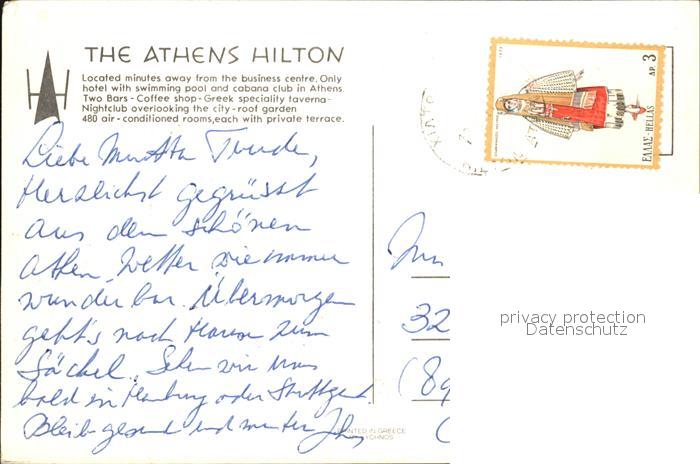 THE ATHENS HILTON
Located minutes away from the business centre. Only
hotel with swimming pool and cabana club in Athens.
Two Bars - Coffee shop - Greek speciality taverna -
Nightclub overlooking the city - roof garden
480 air - conditioned rooms, each with private terrace.
3
ΔΡ.
ΕΛΛΑΣ-HELLAS
Liebe Trude,
Herzlichst gegrüsst
aus dem schönen
Athen. Wetter wie immer
wunderbar. Übermorgen
geht's nach Hause zum
Säckel. Sehen wir uns
bald in Hamburg oder Stuttgart
Bleib gesund und munter
32
(89
(
PRINTED IN GREECE
privacy protection
Datenschutz